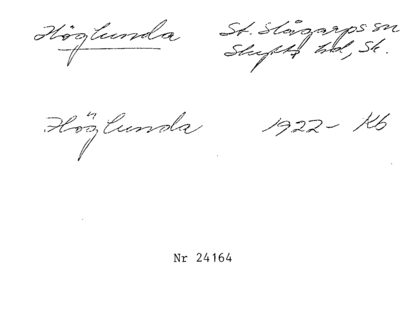 Höglunda St. Slågarps sn
Skytts hd, Sk.
Höglunda 1922- Kb
Nr 24164